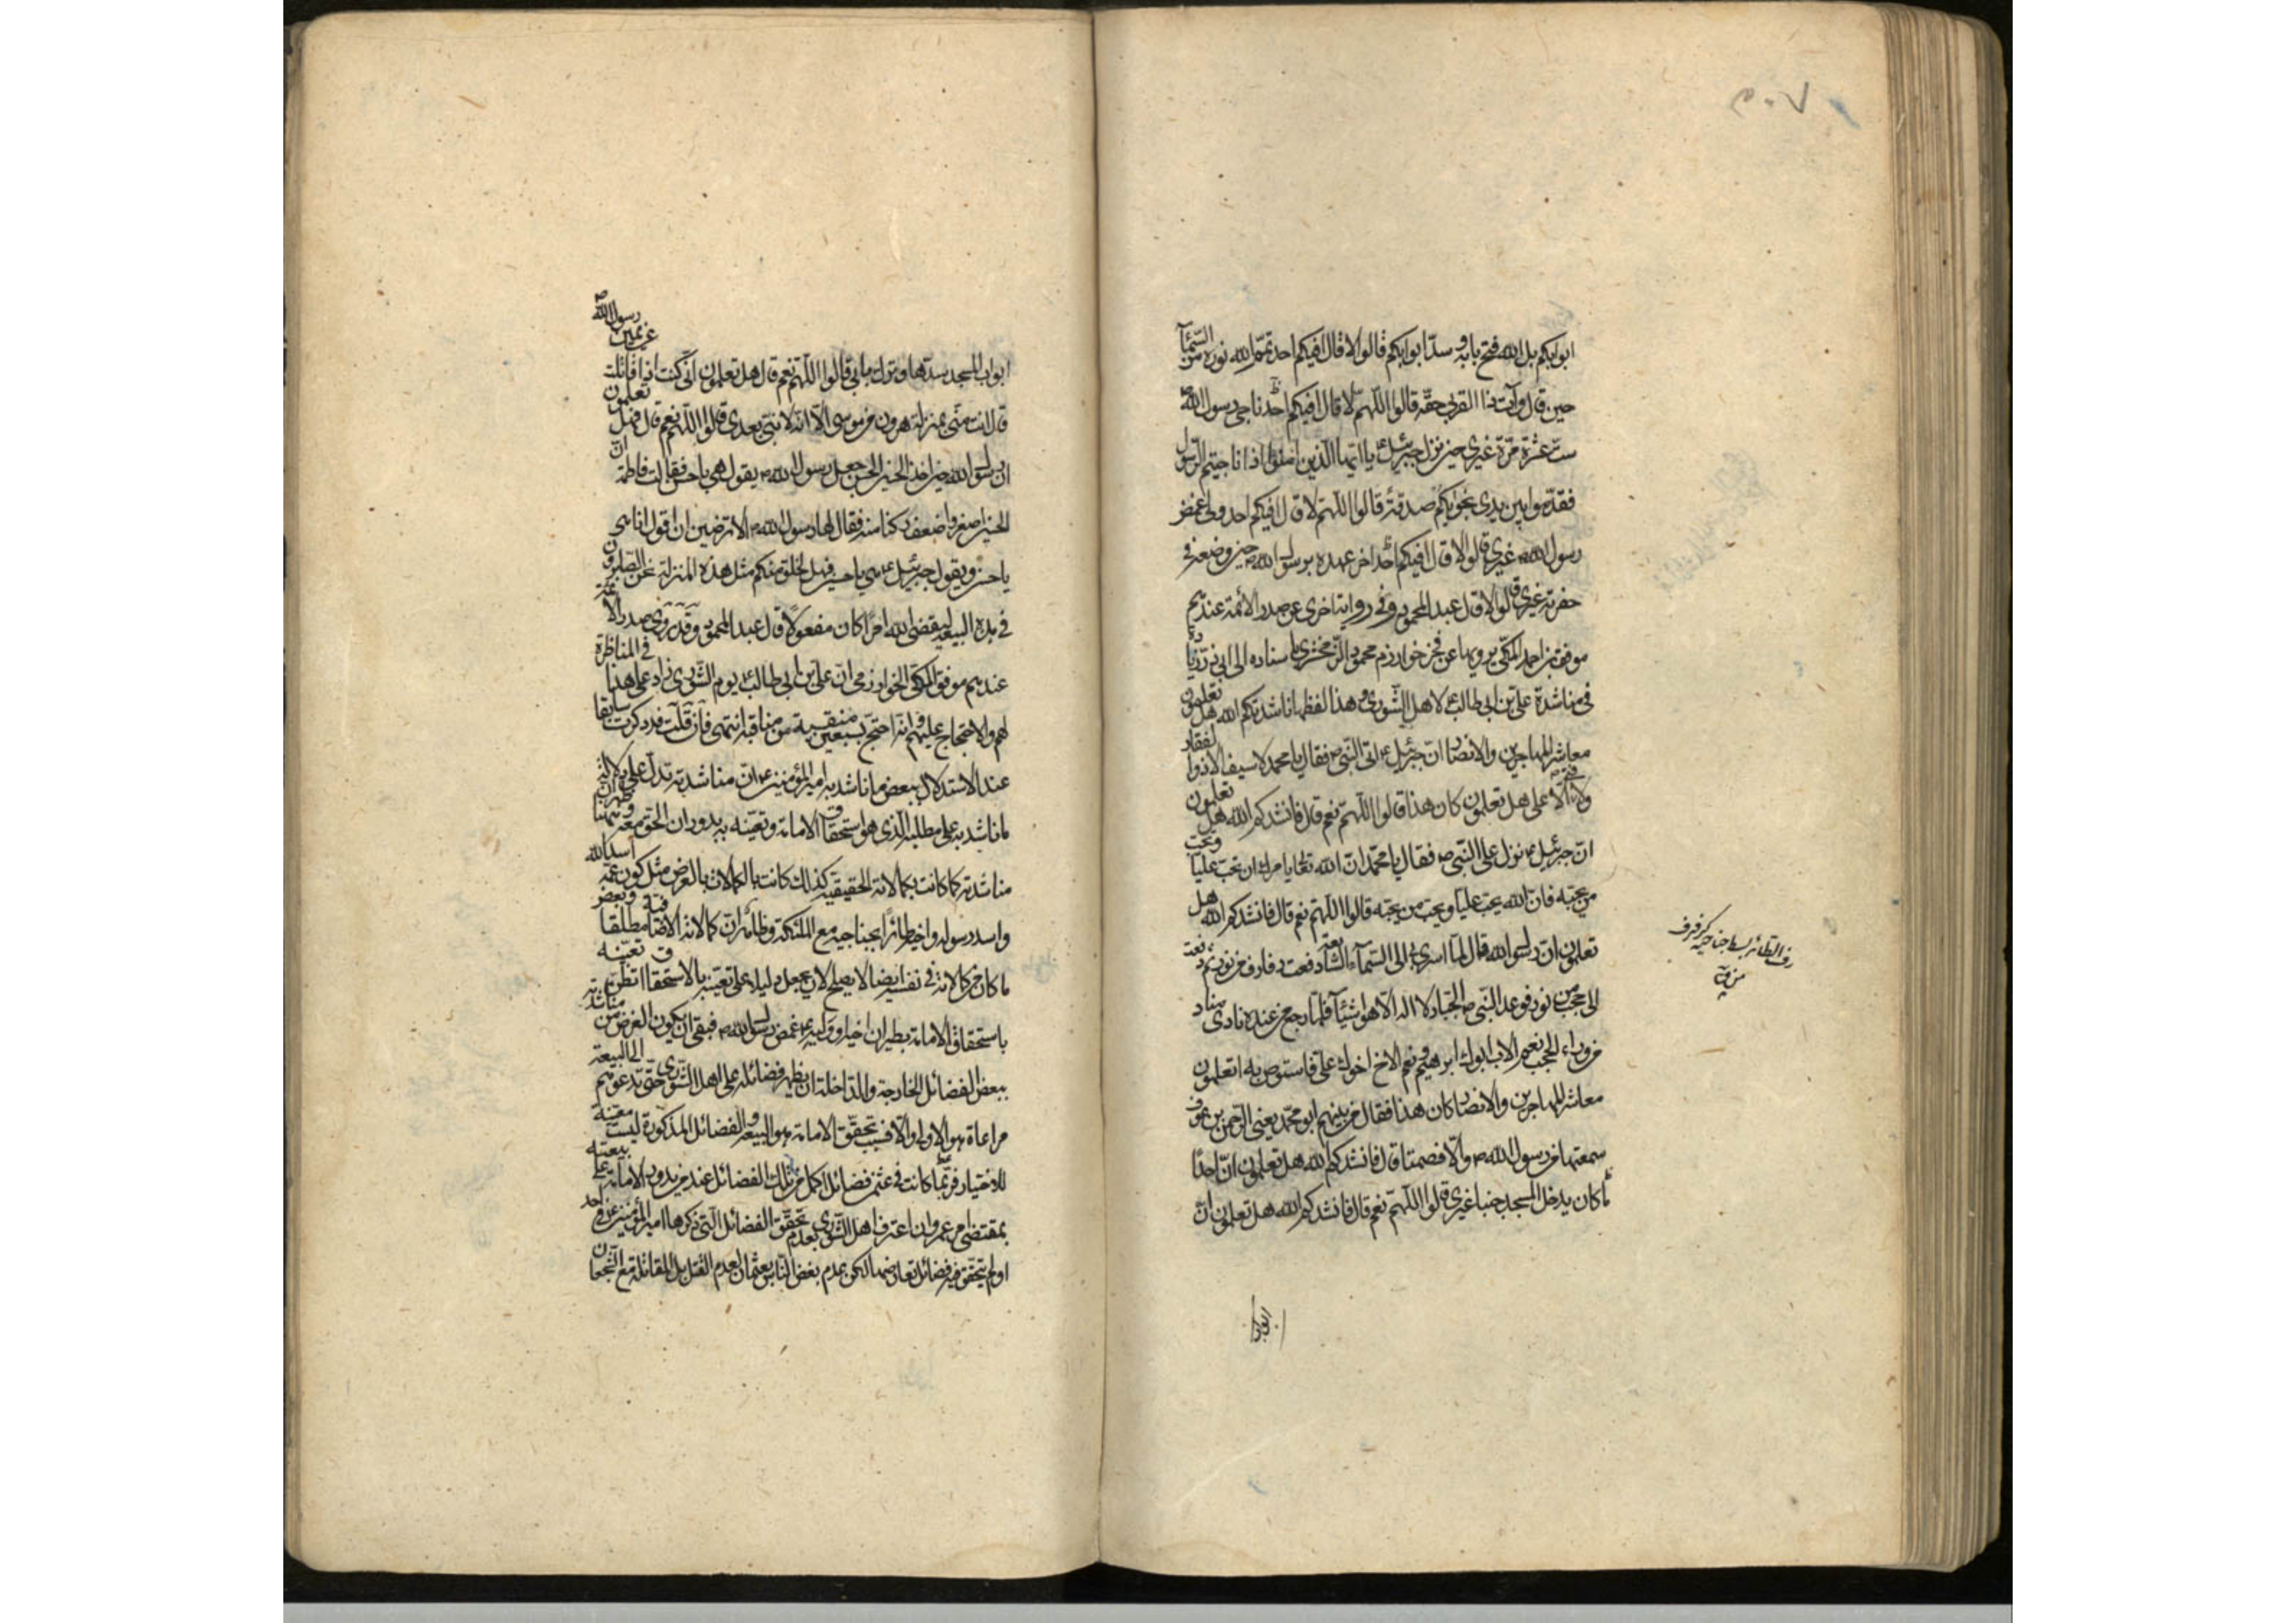 ٥٠٧
ابوابكم بل الله فتح بابه وسدّ ابوابكم قالوا لا قال افيكم احد تمّم الله نوره من السّمآء
حين قال وآت ذا القربى حقّه قالوا اللّهمّ لا قال افيكم احد ناجى رسول الله ص
ستّ عشرة مرّة غيرى حين نزل جبرئيل ع يا ايّها الّذين امنوا اذا ناجيتم الرّسول
فقدّموا بين يدى نجويكم صدقة قالوا اللّهمّ لا قال افيكم احد ولى غمض
رسول الله ص غيرى قالوا لا قال افيكم احد اخر عهده برسول الله ص حين وضعه فى
حفرته غيرى قالوا لا قال عبد المحمود وفى رواية اخرى عن صدر الائمة عندهم
موفق بن احمد المكّى يرويها عن فخر خوارزم محمود الزّمخشرى باسناده الى ابى ذرّ
فى مناشدة علىّ بن ابى طالب ع لاهل الشّورى وهذا لفظها ناشدتكم الله هل تعلمون
معاشر المهاجرين والانصار انّ جبرئيل ع اتى النّبى ص فقال يا محمد لا سيف الا ذوالفقار
ولا فتى الّا على هل تعلمون كان هذا قالوا اللّهمّ نعم قال فانشدكم الله هل تعلمون
انّ جبرئيل ع نزل على النّبى ص فقال يا محمّد انّ الله تعالى يامرك ان تحبّ عليّا وتحبّ
من يحبّه فان الله يحبّ عليّا ويحبّ من يحبّه قالوا اللّهمّ نعم قال فانشدكم الله هل
تعلمون انّ رسول الله قال لمّا اسرى بى الى السّمآء السّابعة رفعت رفارف من نور ثمّ رفعت
الى حجب من نور فوعد النّبى ص الجبّار لا اله الّا هو شيئا فلمّا رجع من عنده نادى مناد
من وراء الحجب نعم الاب ابوك ابرهيم ونعم الاخ اخوك علىّ فاستوص به اتعلمون
معاشر المهاجرين والانصار كان هذا فقال من بينهم ابو محمّد يعنى الرّحمن بن عوف
سمعتها من رسول الله ص والّا فصمتا قال فانشدكم الله هل تعلمون انّ احدا
ما كان يدخل المسجد جنبا غيرى قالوا اللّهمّ نعم قال فانشدكم الله هل تعلمون انّ
ابواب
رف الطائر بسط جناحيه كرفرف
ابواب المسجد سدّها وترك بابى قالوا اللّهمّ نعم قال هل تعلمون انّى كنت اذا قاتلت عن يمين رسول الله ص
قال انت منّى بمنزلة هرون من موسى الّا انّه لا نبىّ بعدى قالوا اللّهمّ نعم قال فهل تعلمون
ان رسول الله حين اخذ الحسن الحسين جعل رسول الله ص يقول هى يا حسن فقالت فاطمة انّ
الحسين اصغر واضعف ركنا منه فقال لها رسول الله ص الا ترضين ان اقول انا هى
يا حسن ويقول جبرئيل ع هى يا حسين فهل لخلق منكم مثل هذه المنزلة نحن الصّابرون
فى هذه البيعة ليقضى الله امرا كان مفعولا قال عبد المحمود وقد روى صدر الائمة
عندهم موفق المكّى الخوارزمى انّ علىّ بن ابى طالب ع يوم الشّورى زاد على هذا فى المناظرة
لهم والاحتجاج عليهم وانّه احتجّ بسبعين منقبة من مناقبه انتهى فان قلت قد ذكرت سابقا
عند الاستدلال ببعض ما ناشد به امير المؤمنين ع انّ مناشدته تدلّ على دلالة
ما ناشد به على مطلبه الّذى هو استحقاق الامامة وتعيّنه به بدوران الحق معه
مناشدته كما كانت بكمالاته الحقيقيّة كذلك كانت بالكمالات بالعرض مثل كون عمّه اسد الله
واسد رسوله واخيه طائرا بجناحيه مع الملئكة وظاهر انّ كمالاته الاضافية مطلقا وبعض
ما كان من كمالاته فى نفسه ايضا لا يصلح لان يجعل دليلا على تعيّنه بالاستحقاق
باستحقاق الامامة بطيران اخيه وولايته غمض رسول الله ص فبقى ان يكون الغرض من مناشدته
ببعض الفضائل الخارجة والداخلة ان يظهر فضائله على اهل الشّورى حتّى تدعوهم الى البيعة
مراعاة هو الاولى والّا فسبب تحقّق الامامة هو البيعة والفضائل المذكورة ليست معيّنة
للاختيار فربّما كانت فى عثمن فضائل اكمل من تلك الفضائل عند مريدون الامامة على بيعته
بمقتضى امر عمر وان اعترف اهل الشّورى بعدم تحقّق الفضائل الّتى ذكرها امير المؤمنين ع فى احد
او لم يتحقّق فيه فضائل تعارضها لكن بعدم بغض النّاس بعثمان لعدم القتل بل المقاتلة مع الشّجعان